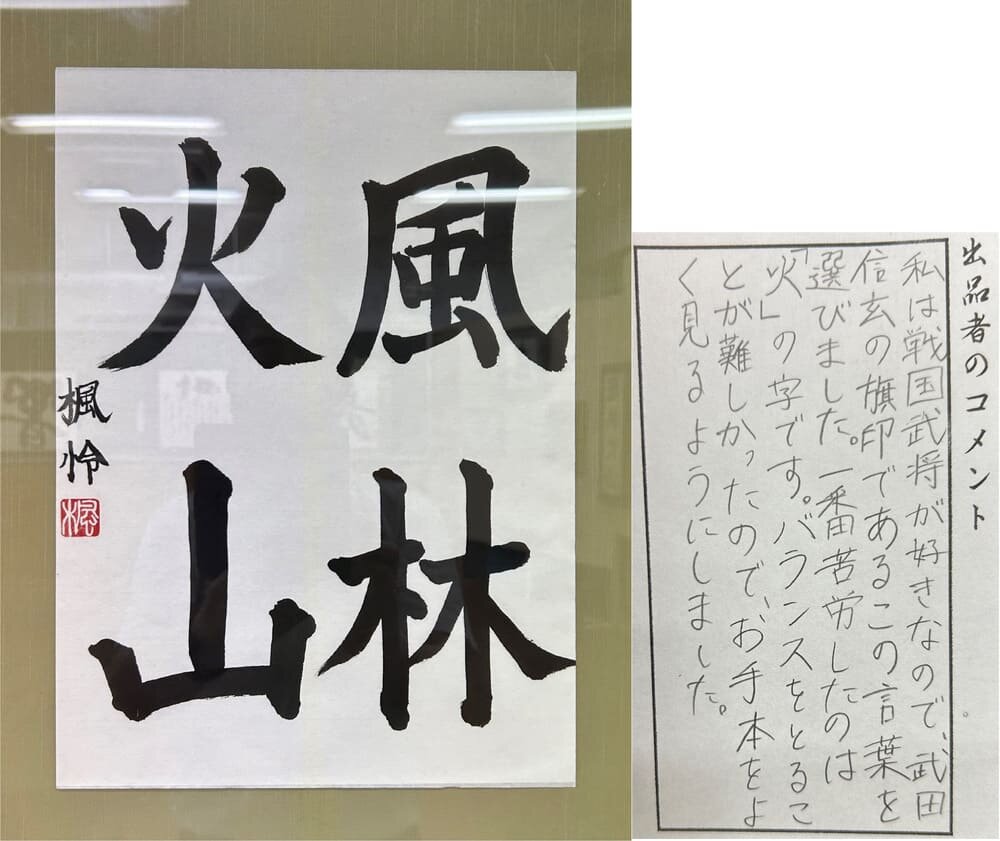 風林
火山
楓怜
楓
出品者のコメント
私は戦国武将が好きなので、武田
信玄の旗印であるこの言葉を
選びました。一番苦労したのは
「火」の字です。バランスをとるこ
とが難しかったので、お手本をよ
く見るようにしました。